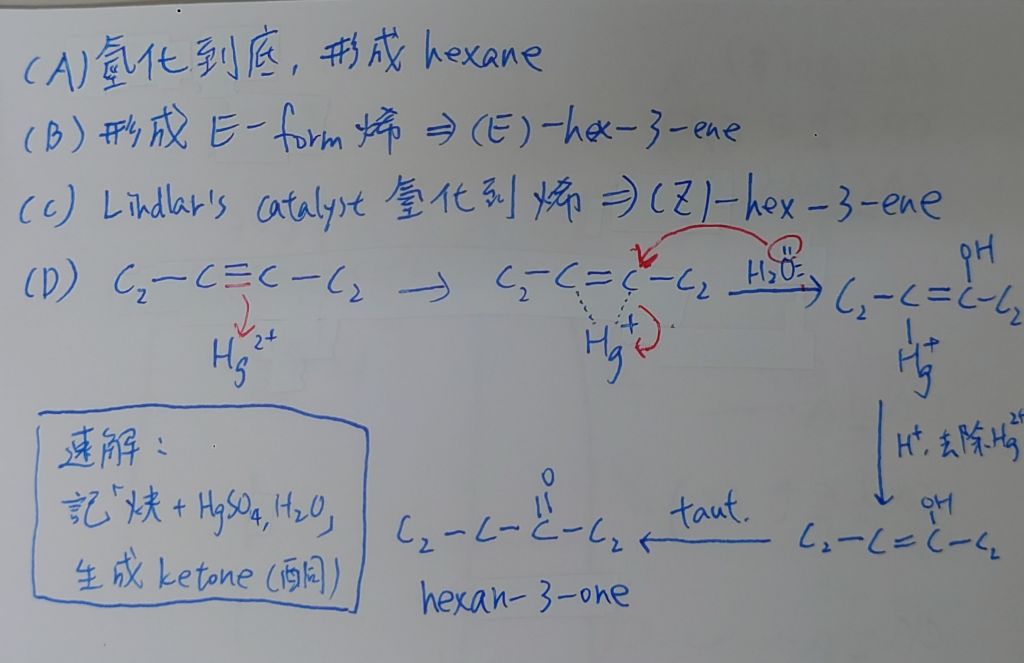 (A) 氫化到底, 形成 hexane
(B) 形成 E-form 烯 ⇒ (E)-hex-3-ene
(C) Lindlar's catalyst 氫化到烯 ⇒ (Z)-hex-3-ene
(D) C₂-C≡C-C₂ → C₂-C=C-C₂ H₂O: C₂-C=C-C₂
OH
Hg²⁺
Hg⁺
Hg⁺
H⁺, 去除 Hg²⁺
OH
C₂-C=C-C₂
taut.
O
C₂-C-C-C₂
hexan-3-one
速解:
記「炔 + HgSO₄, H₂O」
生成 ketone (酮)